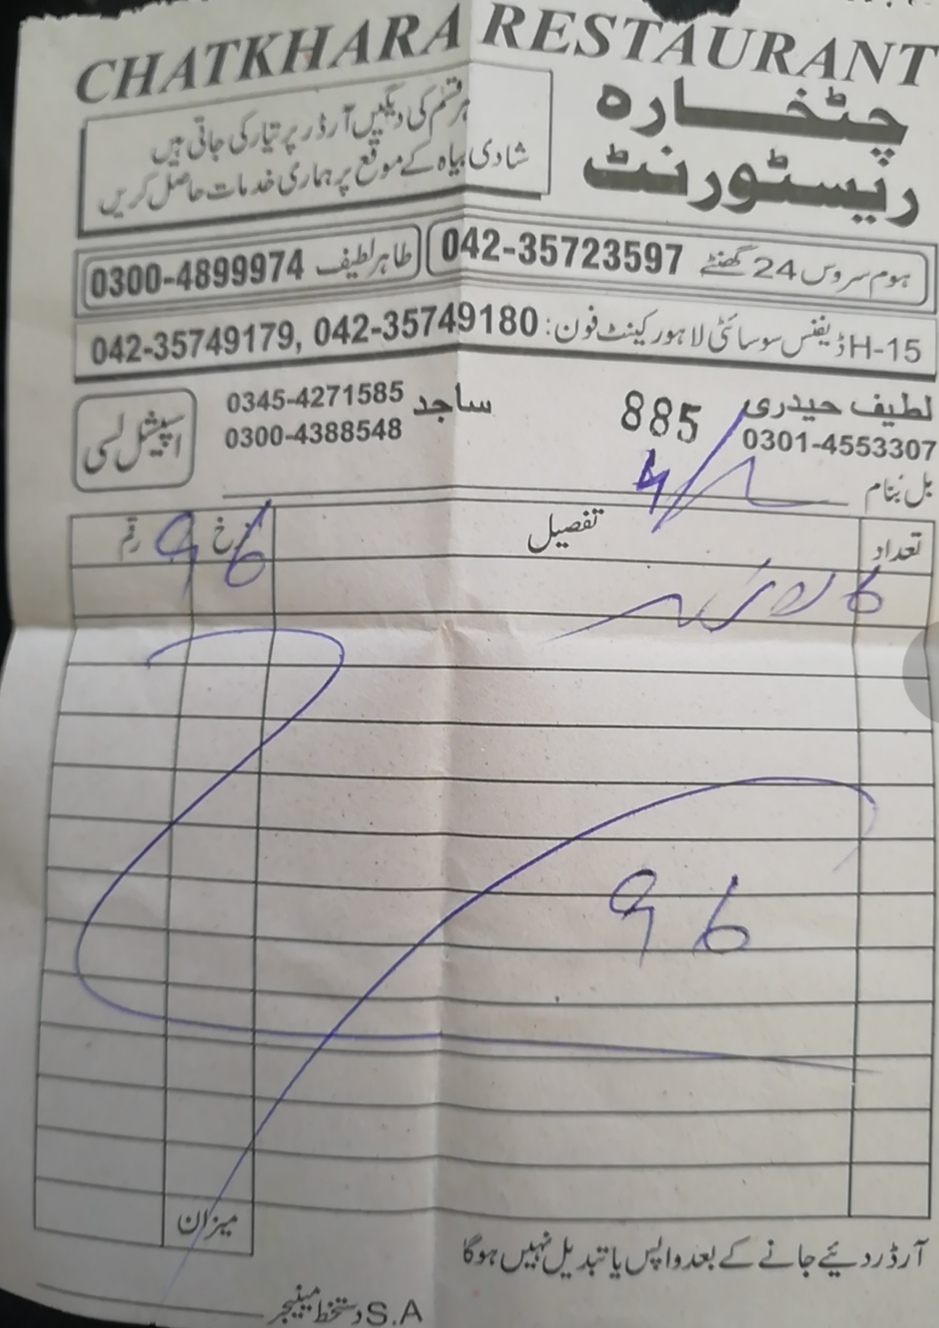 CHATKHARA RESTAURANT
چٹخارہ
ریسٹورنٹ
ہر قسم کی دیگیں آرڈر پر تیار کی جاتی ہیں
شادی بیاہ کے موقع پر ہماری خدمات حاصل کریں
ہوم سروس 24 گھنٹے 042-35723597
طاہر لطیف 0300-4899974
H-15 ڈیفنس سوسائٹی لاہور کینٹ فون: 042-35749179, 042-35749180
لطیف حیدری
0301-4553307
885
ساجد 0345-4271585
0300-4388548
اسپیشل لسی
بل بنام
تعداد تفصیل نرخ رقم
96
6
96
میزان
آرڈر دیئے جانے کے بعد واپس یا تبدیل نہیں ہوگا
S.A دستخط مینیجر